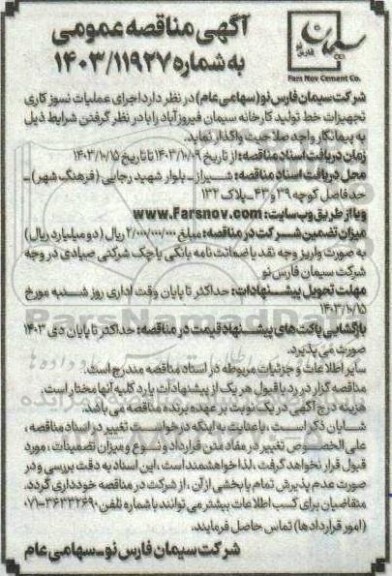 آگهی مناقصه عمومی
به شماره ۱۴۰۳/۱۱۹۲۷
سیمان
فارس نو
Fars Nov Cement Co.
شرکت سیمان فارس نو (سهامی عام) در نظر دارد اجرای عملیات نسوز کاری
تجهیزات خط تولید کارخانه سیمان فیروزآباد را با در نظر گرفتن شرایط ذیل
به پیمانکار واجد صلاحیت واگذار نماید.
زمان دریافت اسناد مناقصه: از تاریخ ۱۴۰۳/۱۰/۰۹ تا تاریخ ۱۴۰۳/۱۰/۱۵
محل دریافت اسناد مناقصه: شیراز - بلوار شهید رجایی (فرهنگ شهر) -
حدفاصل کوچه ۳۹ و ۴۳ - پلاک ۱۳۲
و یا از طریق وب سایت: www.Farsnov.com
میزان تضمین شرکت در مناقصه: مبلغ ۲/۰۰۰/۰۰۰/۰۰۰ ریال (دو میلیارد ریال)
به صورت واریز وجه نقد یا ضمانت نامه بانکی یا چک شرکتی صیادی در وجه
شرکت سیمان فارس نو
مهلت تحویل پیشنهادات: حداکثر تا پایان وقت اداری روز شنبه مورخ
۱۴۰۳/۱۰/۱۵
بازگشایی پاکت های پیشنهاد قیمت در مناقصه: حداکثر تا پایان دی ۱۴۰۳
صورت می پذیرد.
سایر اطلاعات و جزئیات مربوطه در اسناد مناقصه مندرج است.
مناقصه گزار در رد یا قبول هر یک از پیشنهادات یا رد کلیه آنها مختار است.
هزینه درج آگهی در یک نوبت بر عهده برنده مناقصه می باشد.
شایان ذکر است، با عنایت به اینکه درخواست تغییر در اسناد مناقصه،
علی الخصوص تغییر در مفاد متن قرارداد و نوع و میزان تضمینات، مورد
قبول قرار نخواهد گرفت. لذا خواهشمند است، این اسناد به دقت بررسی و در
صورت عدم پذیرش تمام یا بخشی از آن، از شرکت در مناقصه خودداری گردد.
متقاضیان برای کسب اطلاعات بیشتر می توانند با شماره تلفن ۳۶۳۳۲۶۹۰-۰۷۱
(امور قراردادها) تماس حاصل فرمایند.
شرکت سیمان فارس نو - سهامی عام
ParsNamadData